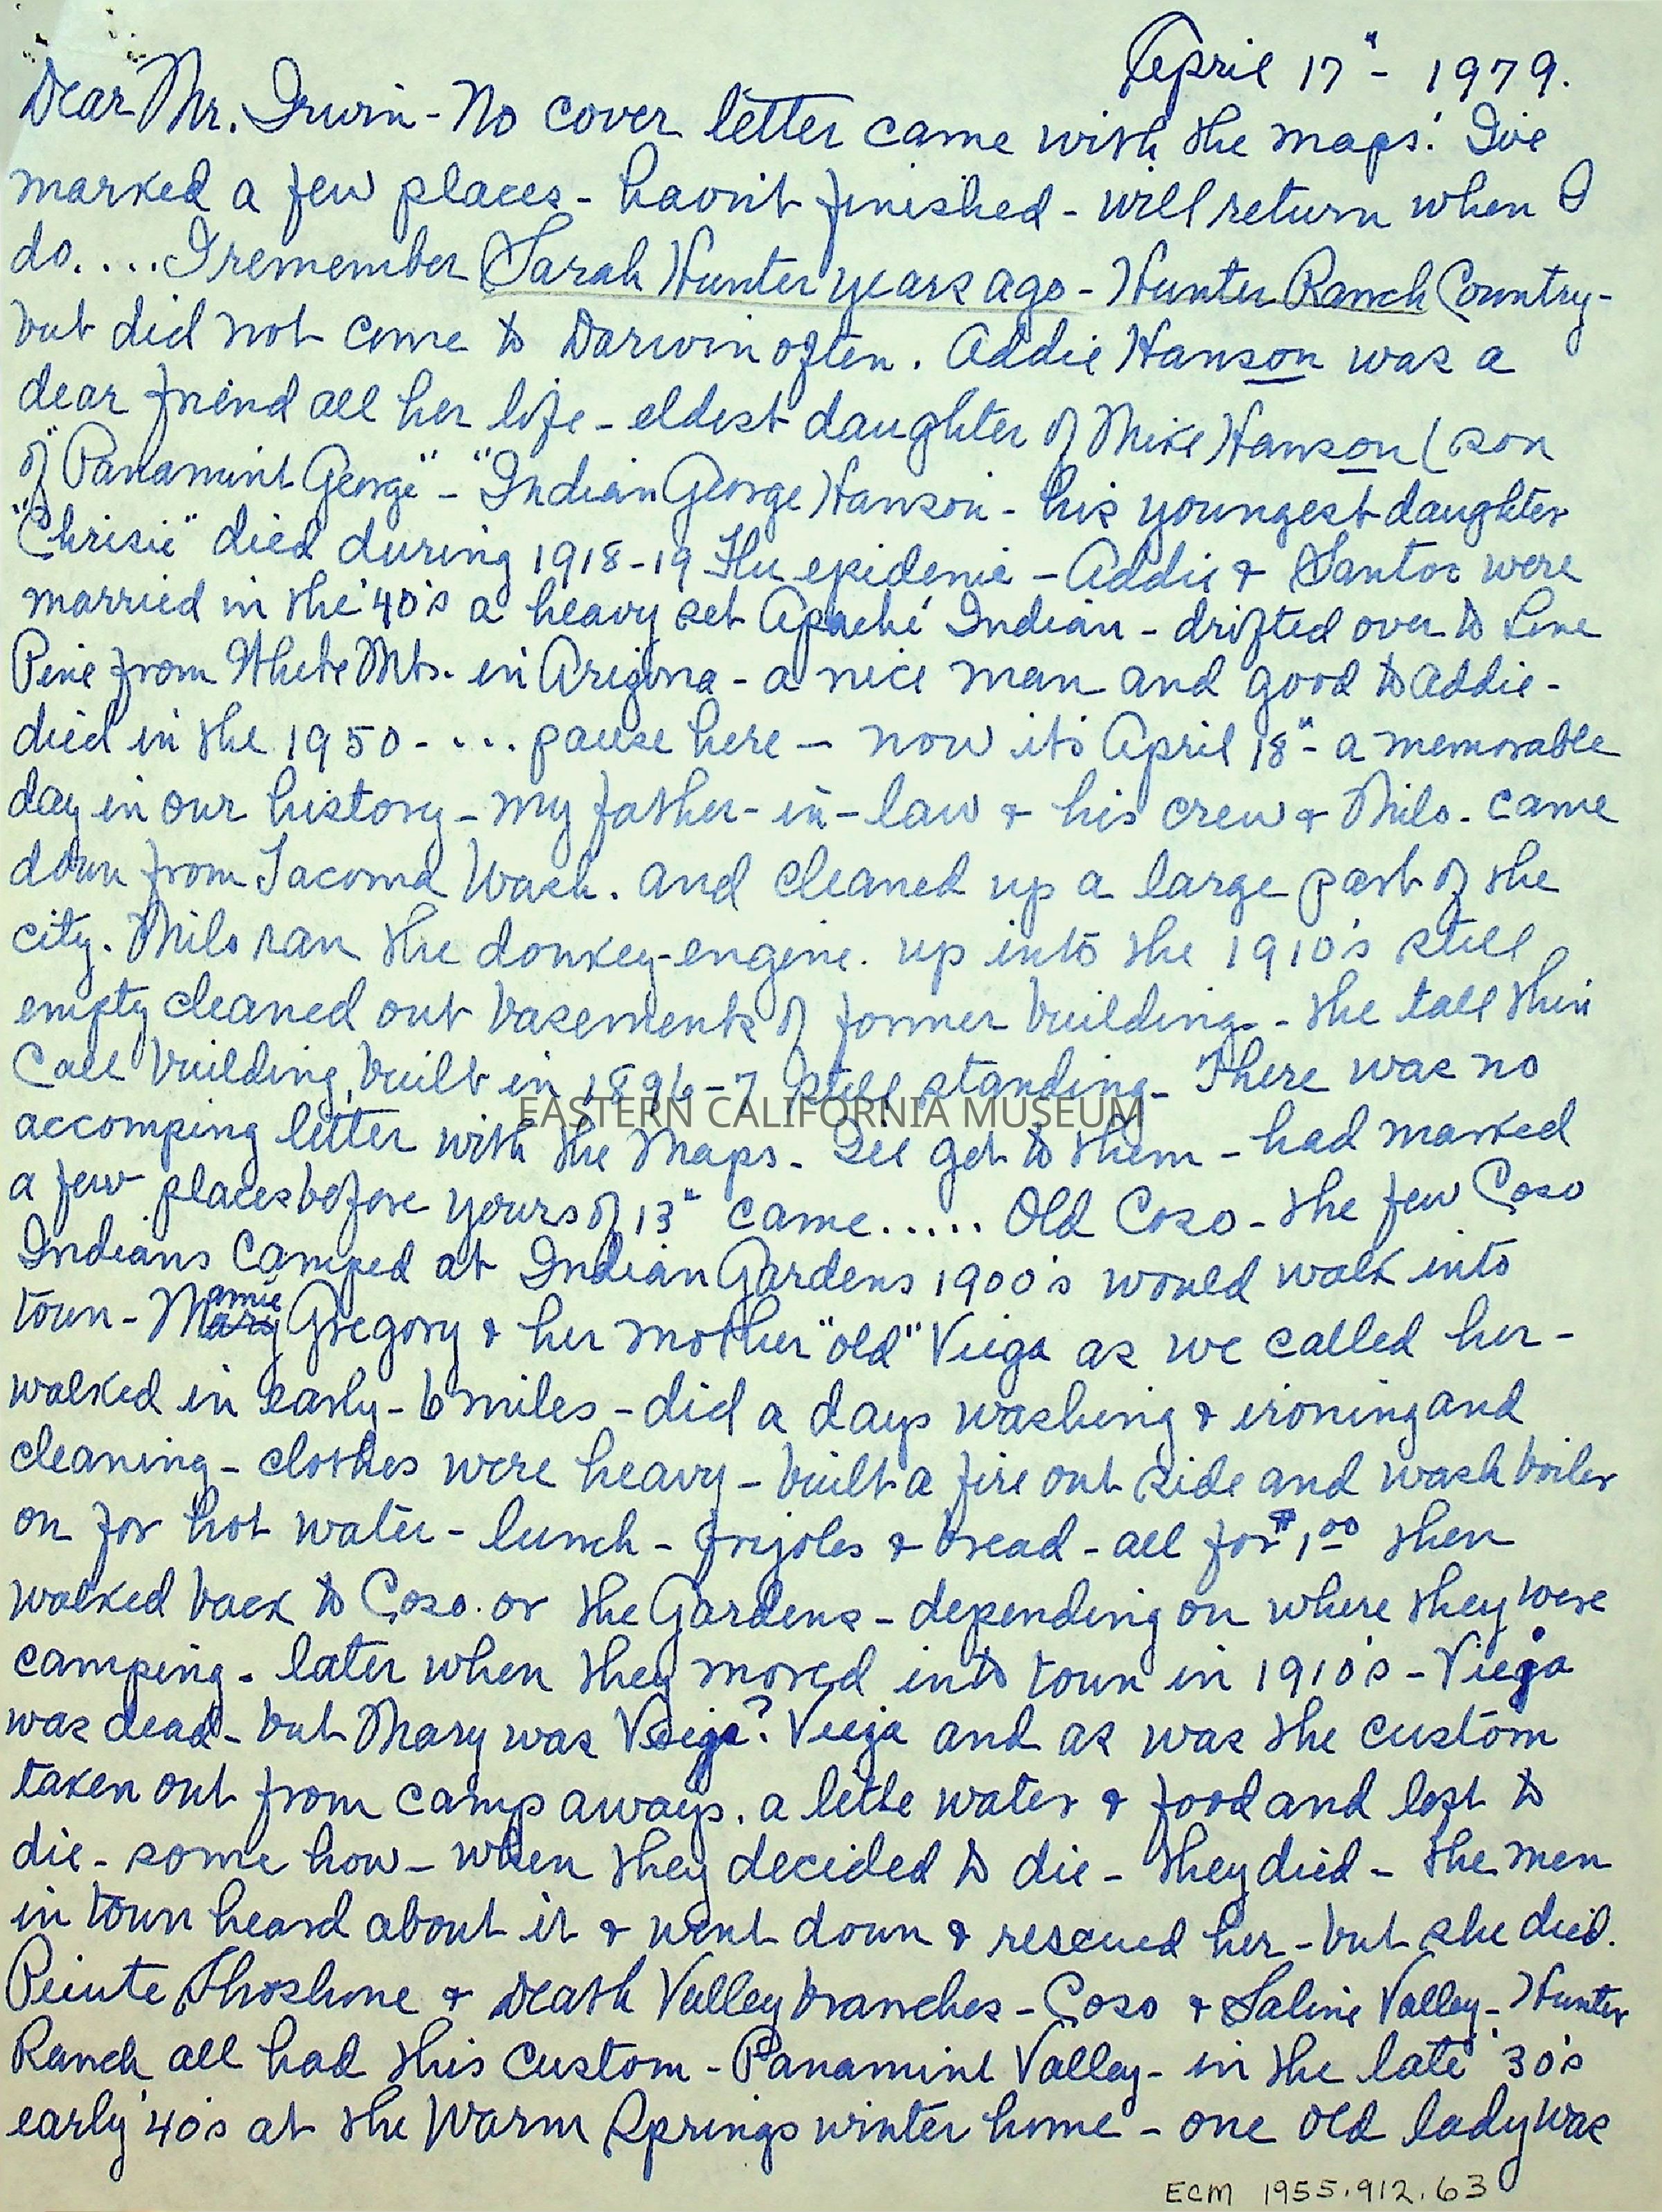 April 17" - 1979.
Dear Mr. Irwin - No cover letter came with the maps! I've
marked a few places - hav'nt finished - will return when I
do.... I remember Sarah Hunter years ago - Hunter Ranch Country -
but did not come to Darwin often. Addie Hanson was a
dear friend all her life - eldest daughter of Mike Hanson (son
of "Panamint George" - "Indian George Hanson - his youngest daughter
"Chrisie" died during 1918-19 Flu epidemic - Addie & Santos were
married in the '40's a heavy set Apache Indian - drifted over to Lone
Pine from White Mts. in Arizona - a nice man and good to Addie -
died in the 1950 - ... pause here - now its April 18" - a memorable
day in our history - my father-in-law & his crew & Milo - came
down from Tacoma Wash. and cleaned up a large part of the
city. Milo ran the donkey-engine. up into the 1910's still
empty cleaned out basements of former building - the tall thin
Call building, built in 1896-7 still standing - There was no
EASTERN CALIFORNIA MUSEUM
accomping letter with the maps - I'll get to them - had marked
a few places before yours of 13" came..... Old Coso - the few Coso
Indians camped at Indian Gardens 1900's would walk into
amie
town - Mary Gregory & her mother "old" Viega as we called her -
walked in early - 6 miles - did a days washing & ironing and
cleaning - clothes were heavy - built a fire out side and wash boiler
on for hot water - lunch - frijoles & bread - all for $1.00 then
walked back to Coso. or the Gardens - depending on where they were
camping - later when they moved into town in 1910's - Vieja
was dead - but Mary was Veiga? Vieja and as was the custom
taken out from camp aways. a little water & food and left to
die - some how - when they decided to die - they died - the men
in town heard about it & went down & rescued her - but she died.
Peiute Shoshone & Death Valley branches - Coso & Saline Valley - Hunter
Ranch all had this custom - Panamint Valley - in the late '30's
early '40's at the Warm Springs winter home - one old lady was
ECM 1955.912.63